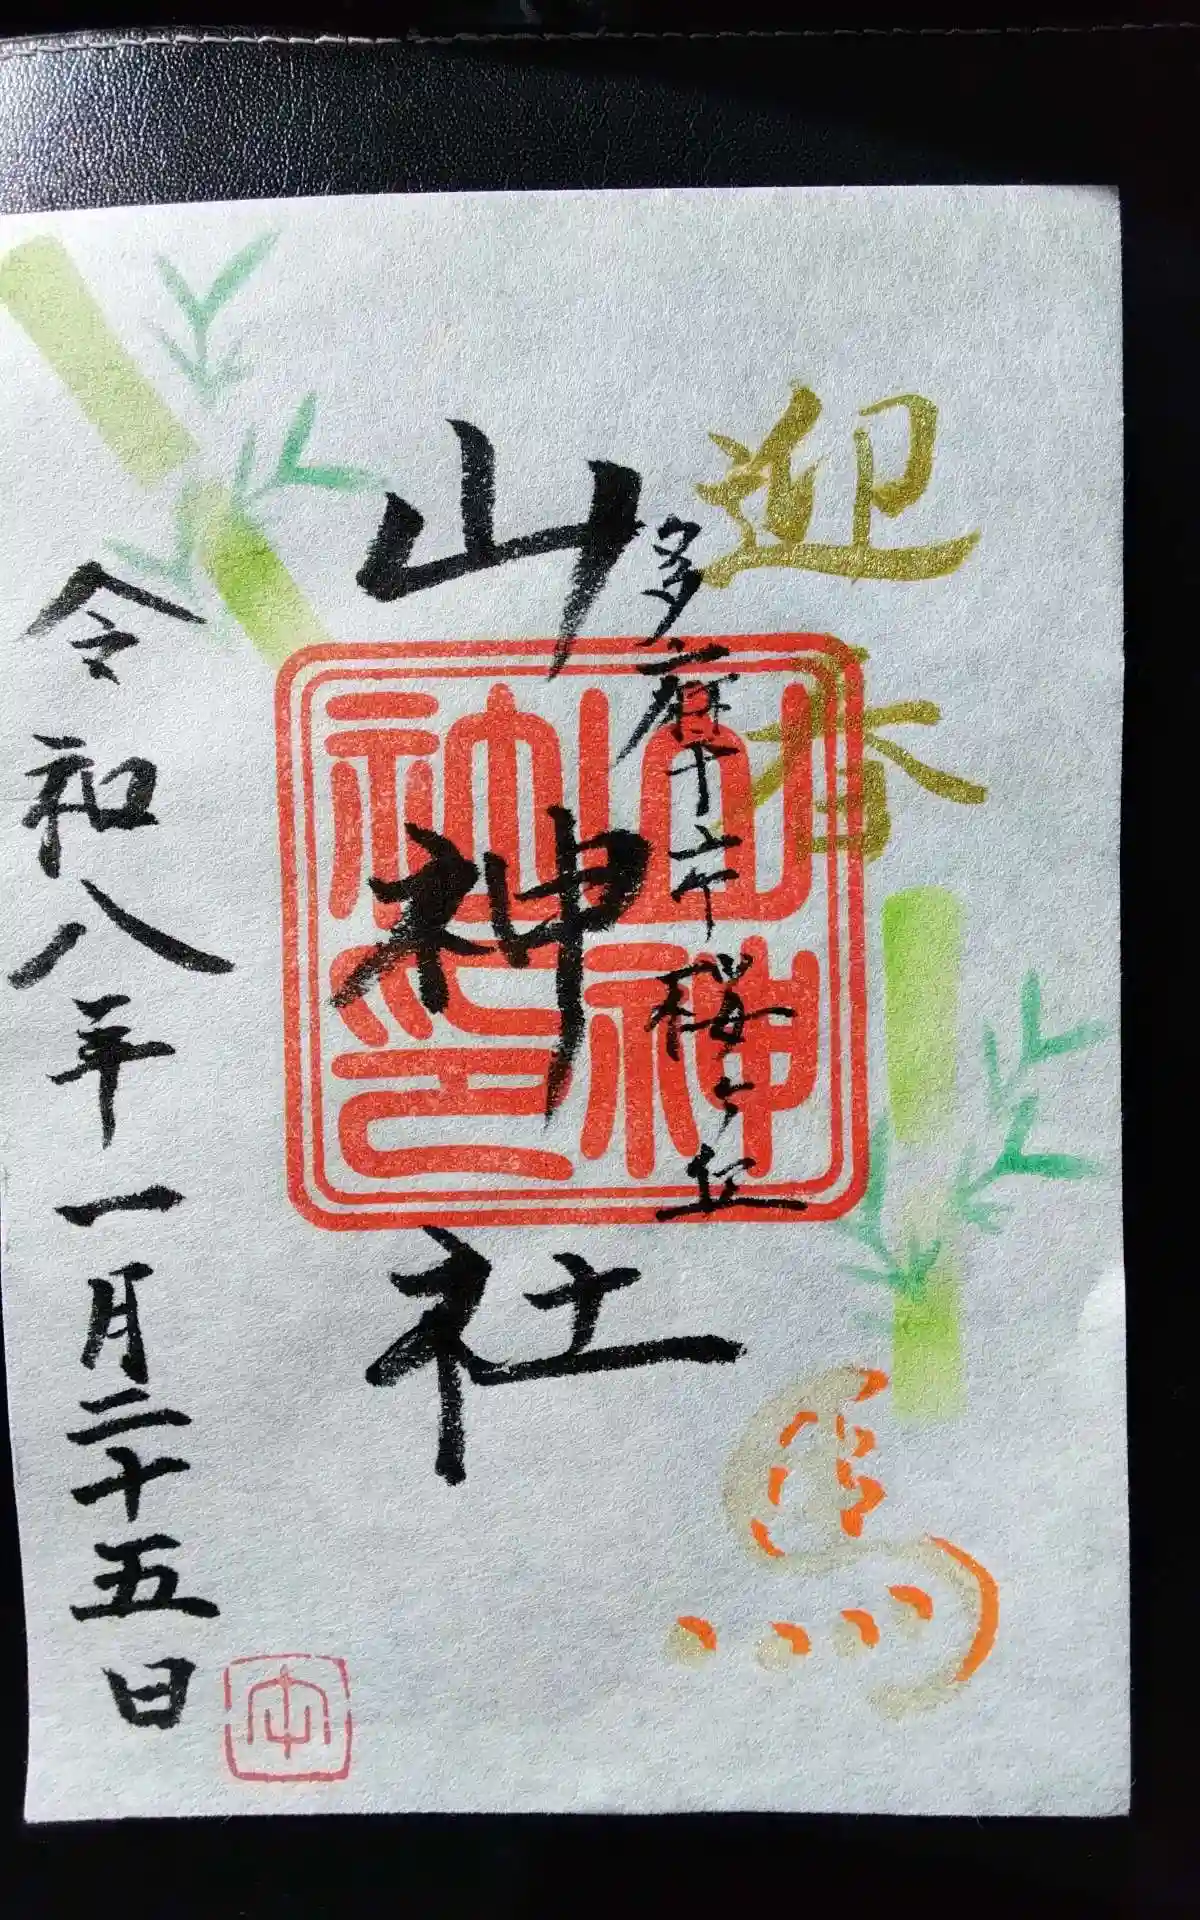 迎春
馬
多摩市桜ヶ丘
山神社
令和八年一月二十五日